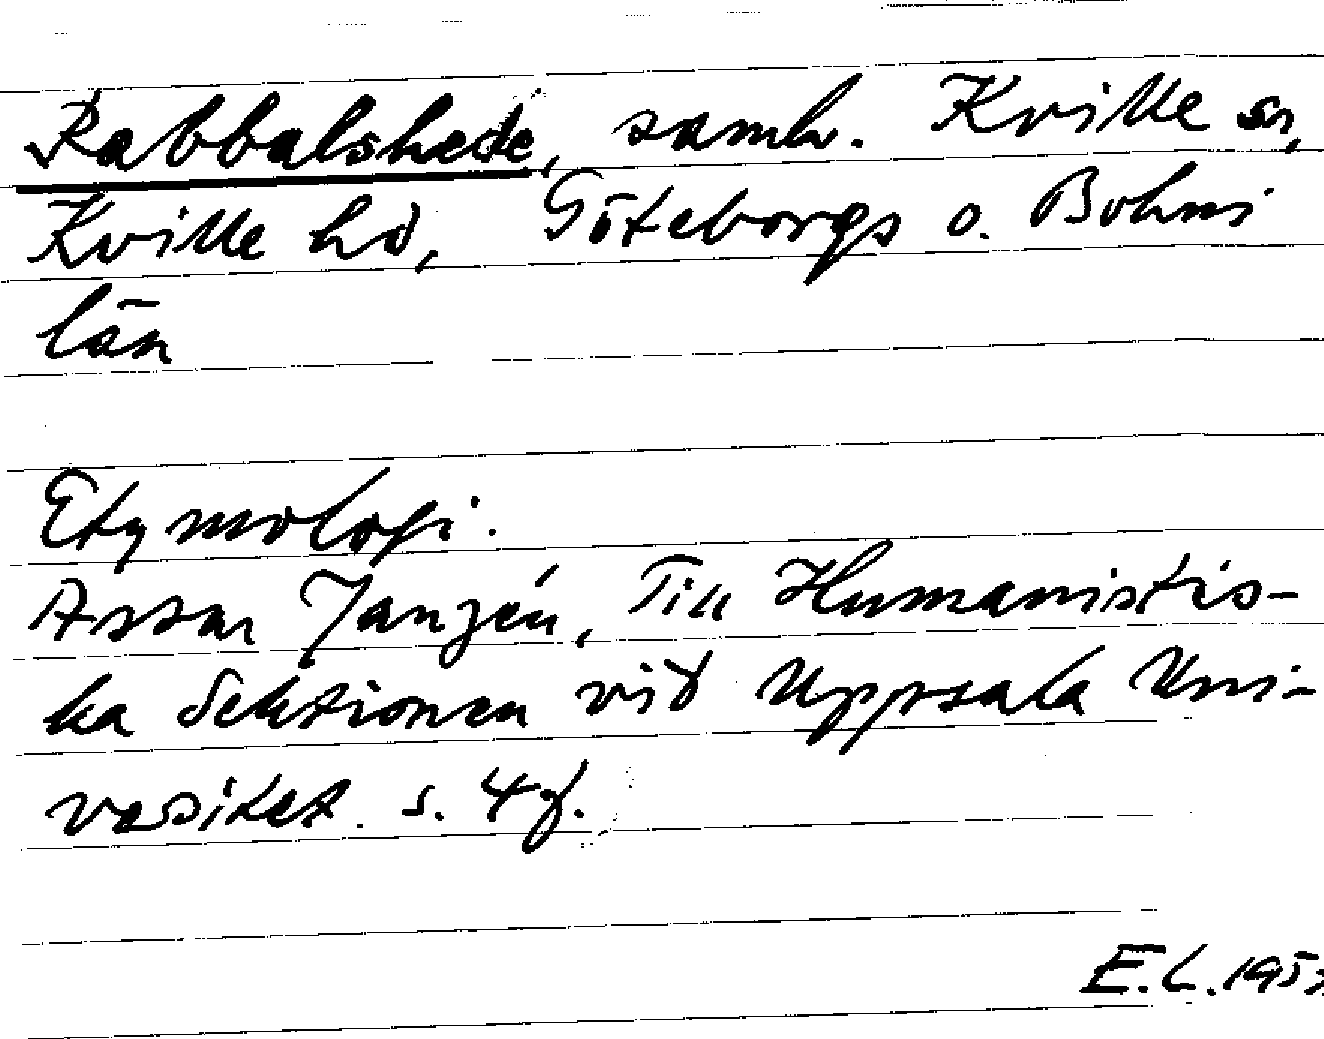 Rabbalshede, samh. Kville sn,
Kville hd, Göteborgs o. Bohus
län
Etymologi.
Assar Janzén, Till Humanistis-
ka Sektionen vid Uppsala Uni-
versitet. s. 4 f.
E.L.